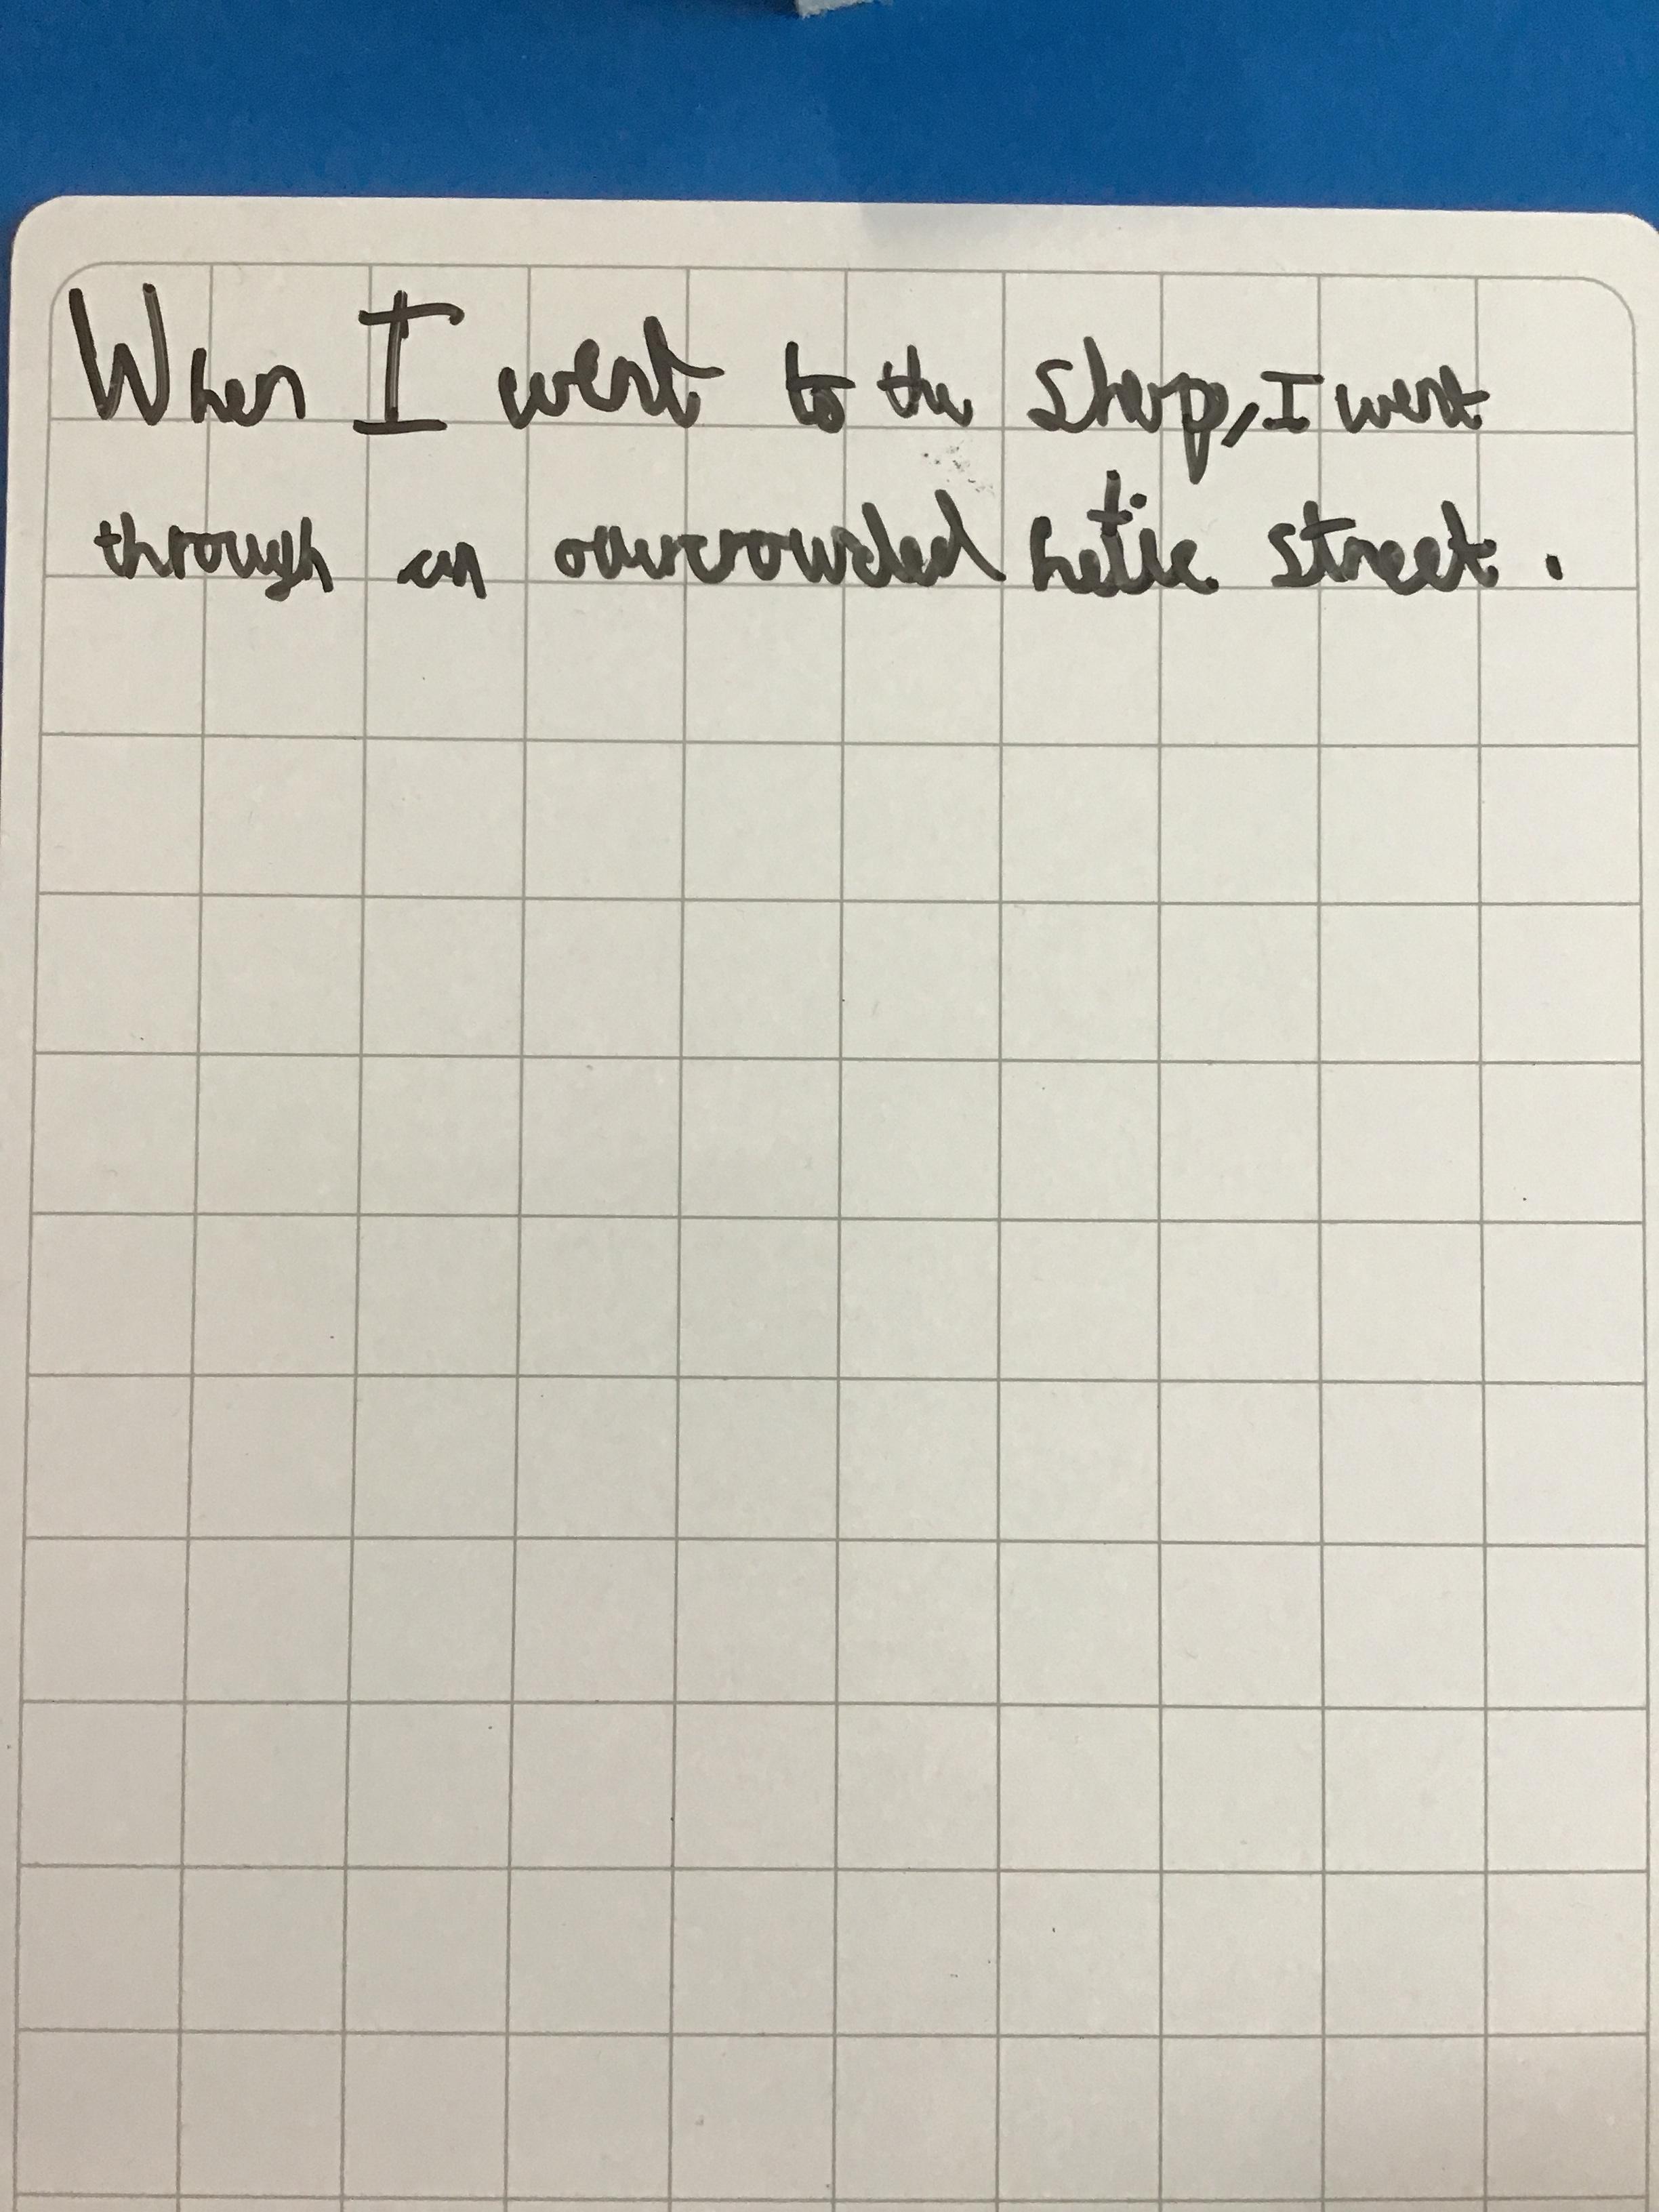 When I went to the shop, I went
through an overcrowded hetic street.